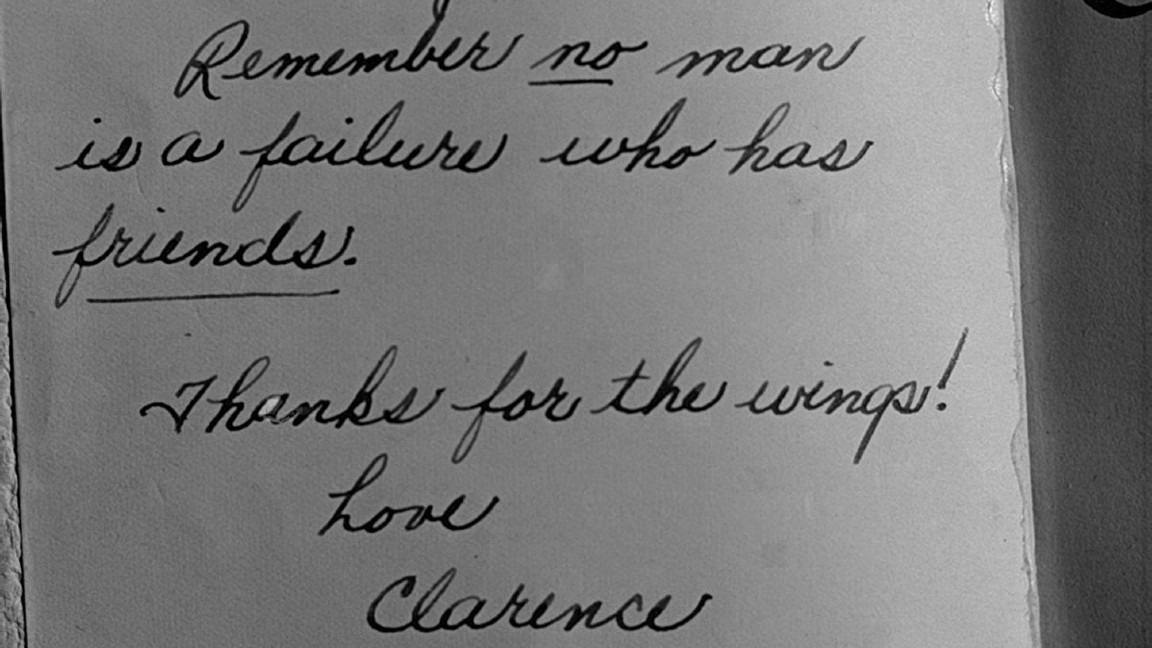 Remember no man
is a failure who has
friends.
Thanks for the wings!
Love
Clarence